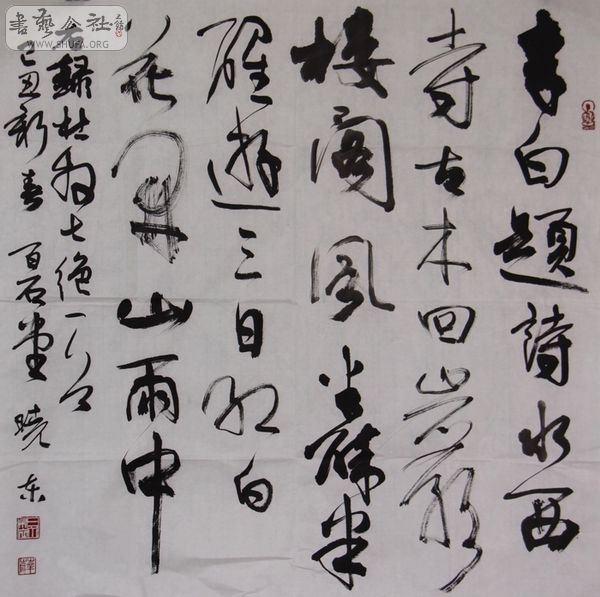 書藝公社
WWW.SHUFA.ORG
李白題詩水西
寺古木回巖
樓閣風半醉半
醒遊三日紅白
花開山雨中
錄杜牧七絕一首
己丑新春 百石堂 曉東